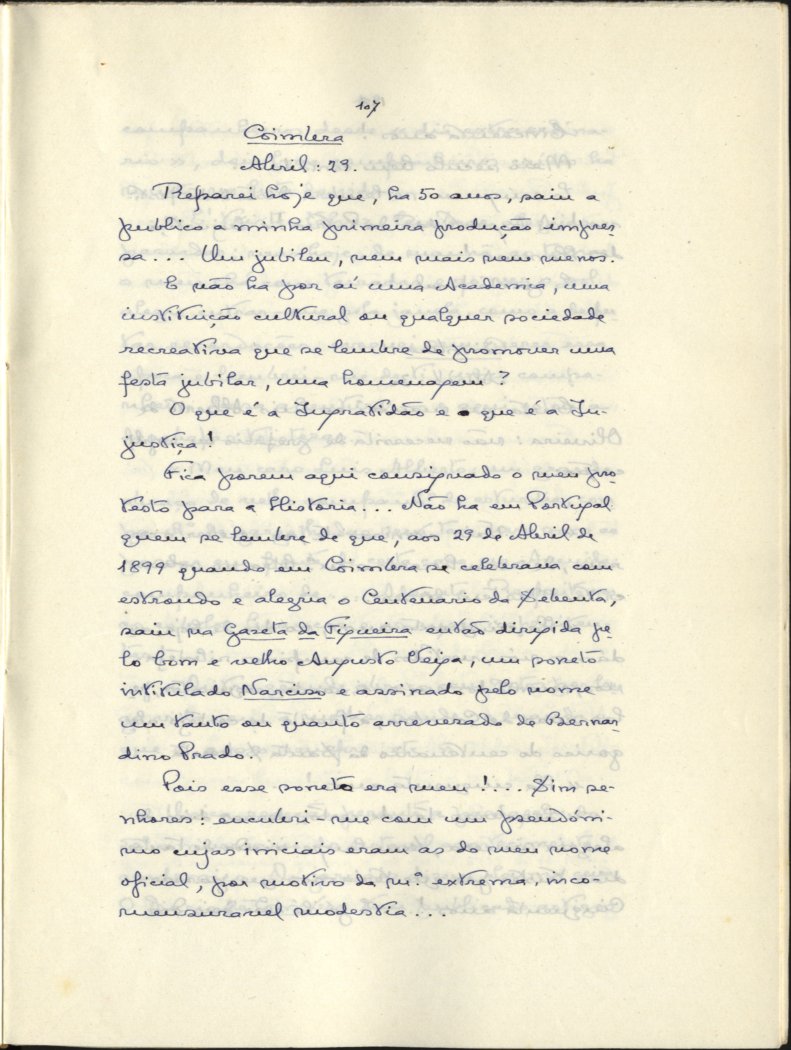 107
Coimbra
Abril: 29.
Reparei hoje que, ha 50 anos, saiu a
publico a minha primeira produção impres-
sa... Um jubileu, nem mais nem menos.
E não ha por aí uma Academia, uma
instituição cultural ou qualquer sociedade
recreativa que se lembre de promover uma
festa jubilar, uma homenagem?
O que é a Ingratidão e o que é a In-
justiça!
Fica porem aqui consignado o meu pro-
testo para a Historia... Não ha em Portugal
quem se lembre de que, aos 29 de Abril de
1899 quando em Coimbra se celebrava com
estrondo e alegria o Centenario da Sebenta,
saiu na Gazeta da Figueira então dirigida pe-
lo bom e velho Augusto Veiga, um soneto
intitulado Narciso e assinado pelo nome
um tanto ou quanto arrevezado de Bernar-
dino Prado.
Pois esse soneto era meu!... Sim se-
nhores: encubri-me com um pseudóni-
mo cujas iniciais eram as do meu nome
oficial, por motivo da m.ª extrema, inco-
mensuravel modestia...